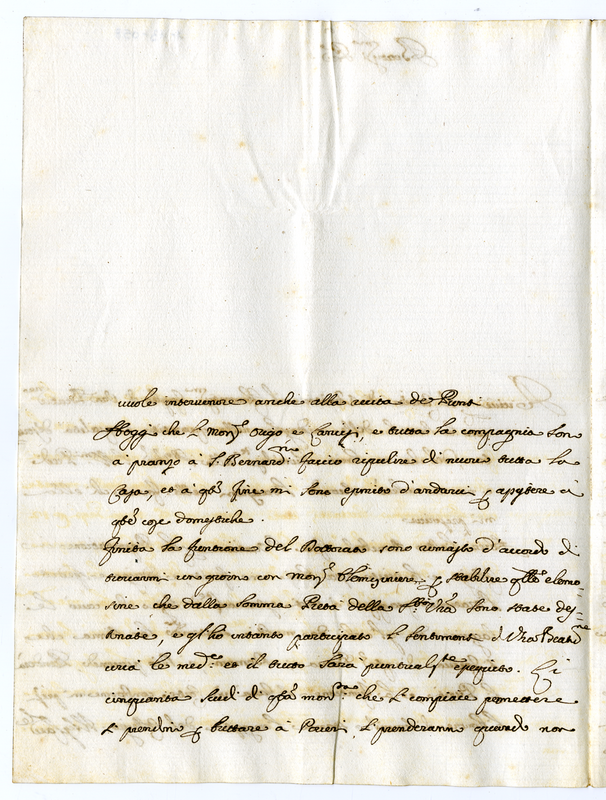 vuole intervenire anche alla recita de Punti
Hogg che Monsʳ Origo e, e tutta la compagnia sono
a pranzo à S. Bernardⁿᵒ faccio ripulire di nuovo tutta la
Casa, et à qᵗᵒ fine mi sono esimito d'andarci ꝑ assistere a
qᵗᵉ cose domestiche.
finita la funtione del Dottorato sono rimasto d'accordo di
trovarmi un giorno con Monsʳ Elemosiniere, ꝑ stabilire qˡˡᵉ elemo,
sine che dalla somma Pietà della Sᵗᵃ Vʳᵃ sono state des,
tinate, e gl'ho intanto participato i sentimenti di Vʳᵃ Beatᵈⁿᵉ
circa le medᵉ et il tutto sarà puntualᵗᵉ eseguito. Li
cinquanta scudi di qᵗᵃ monᵗᵃ che si compiace permettere
si prendino ꝑ buttare à Poveri, si prenderanno quando non